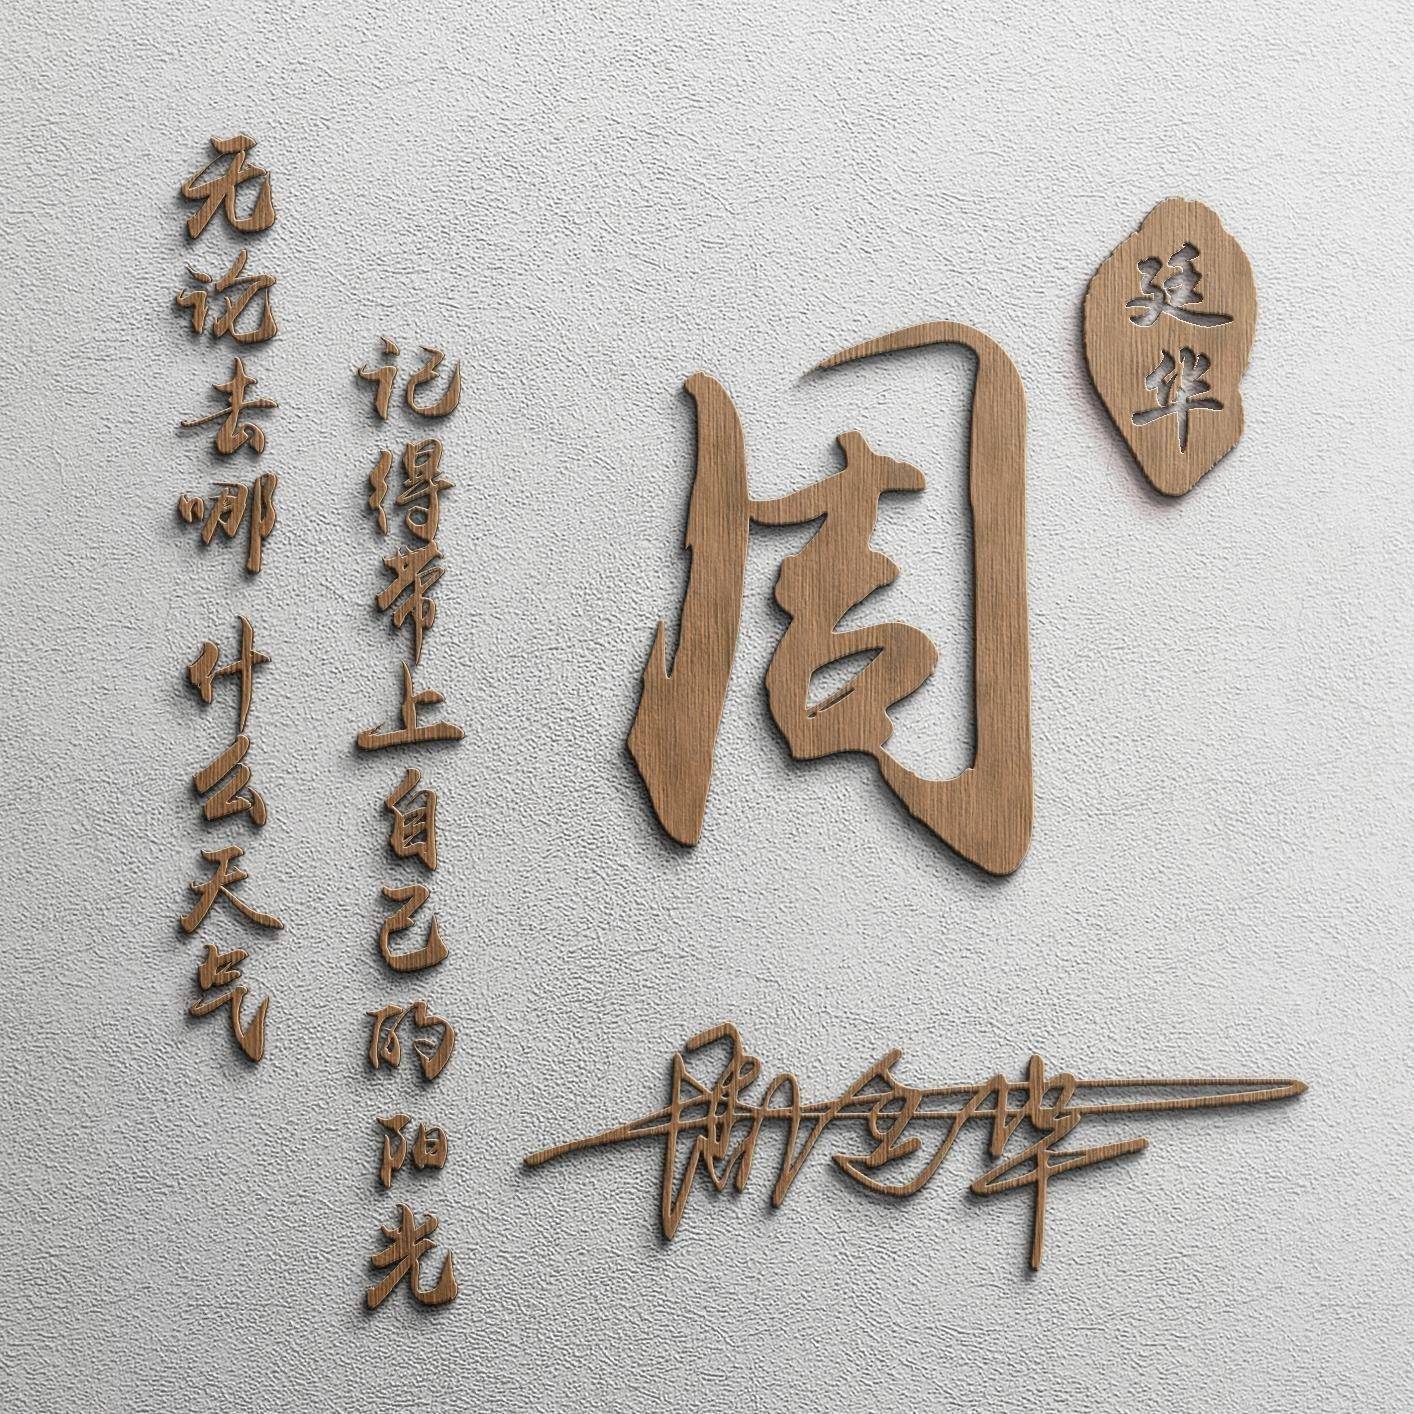 无论去哪 什么天气
记得带上自己的阳光
周
廷华
周廷华